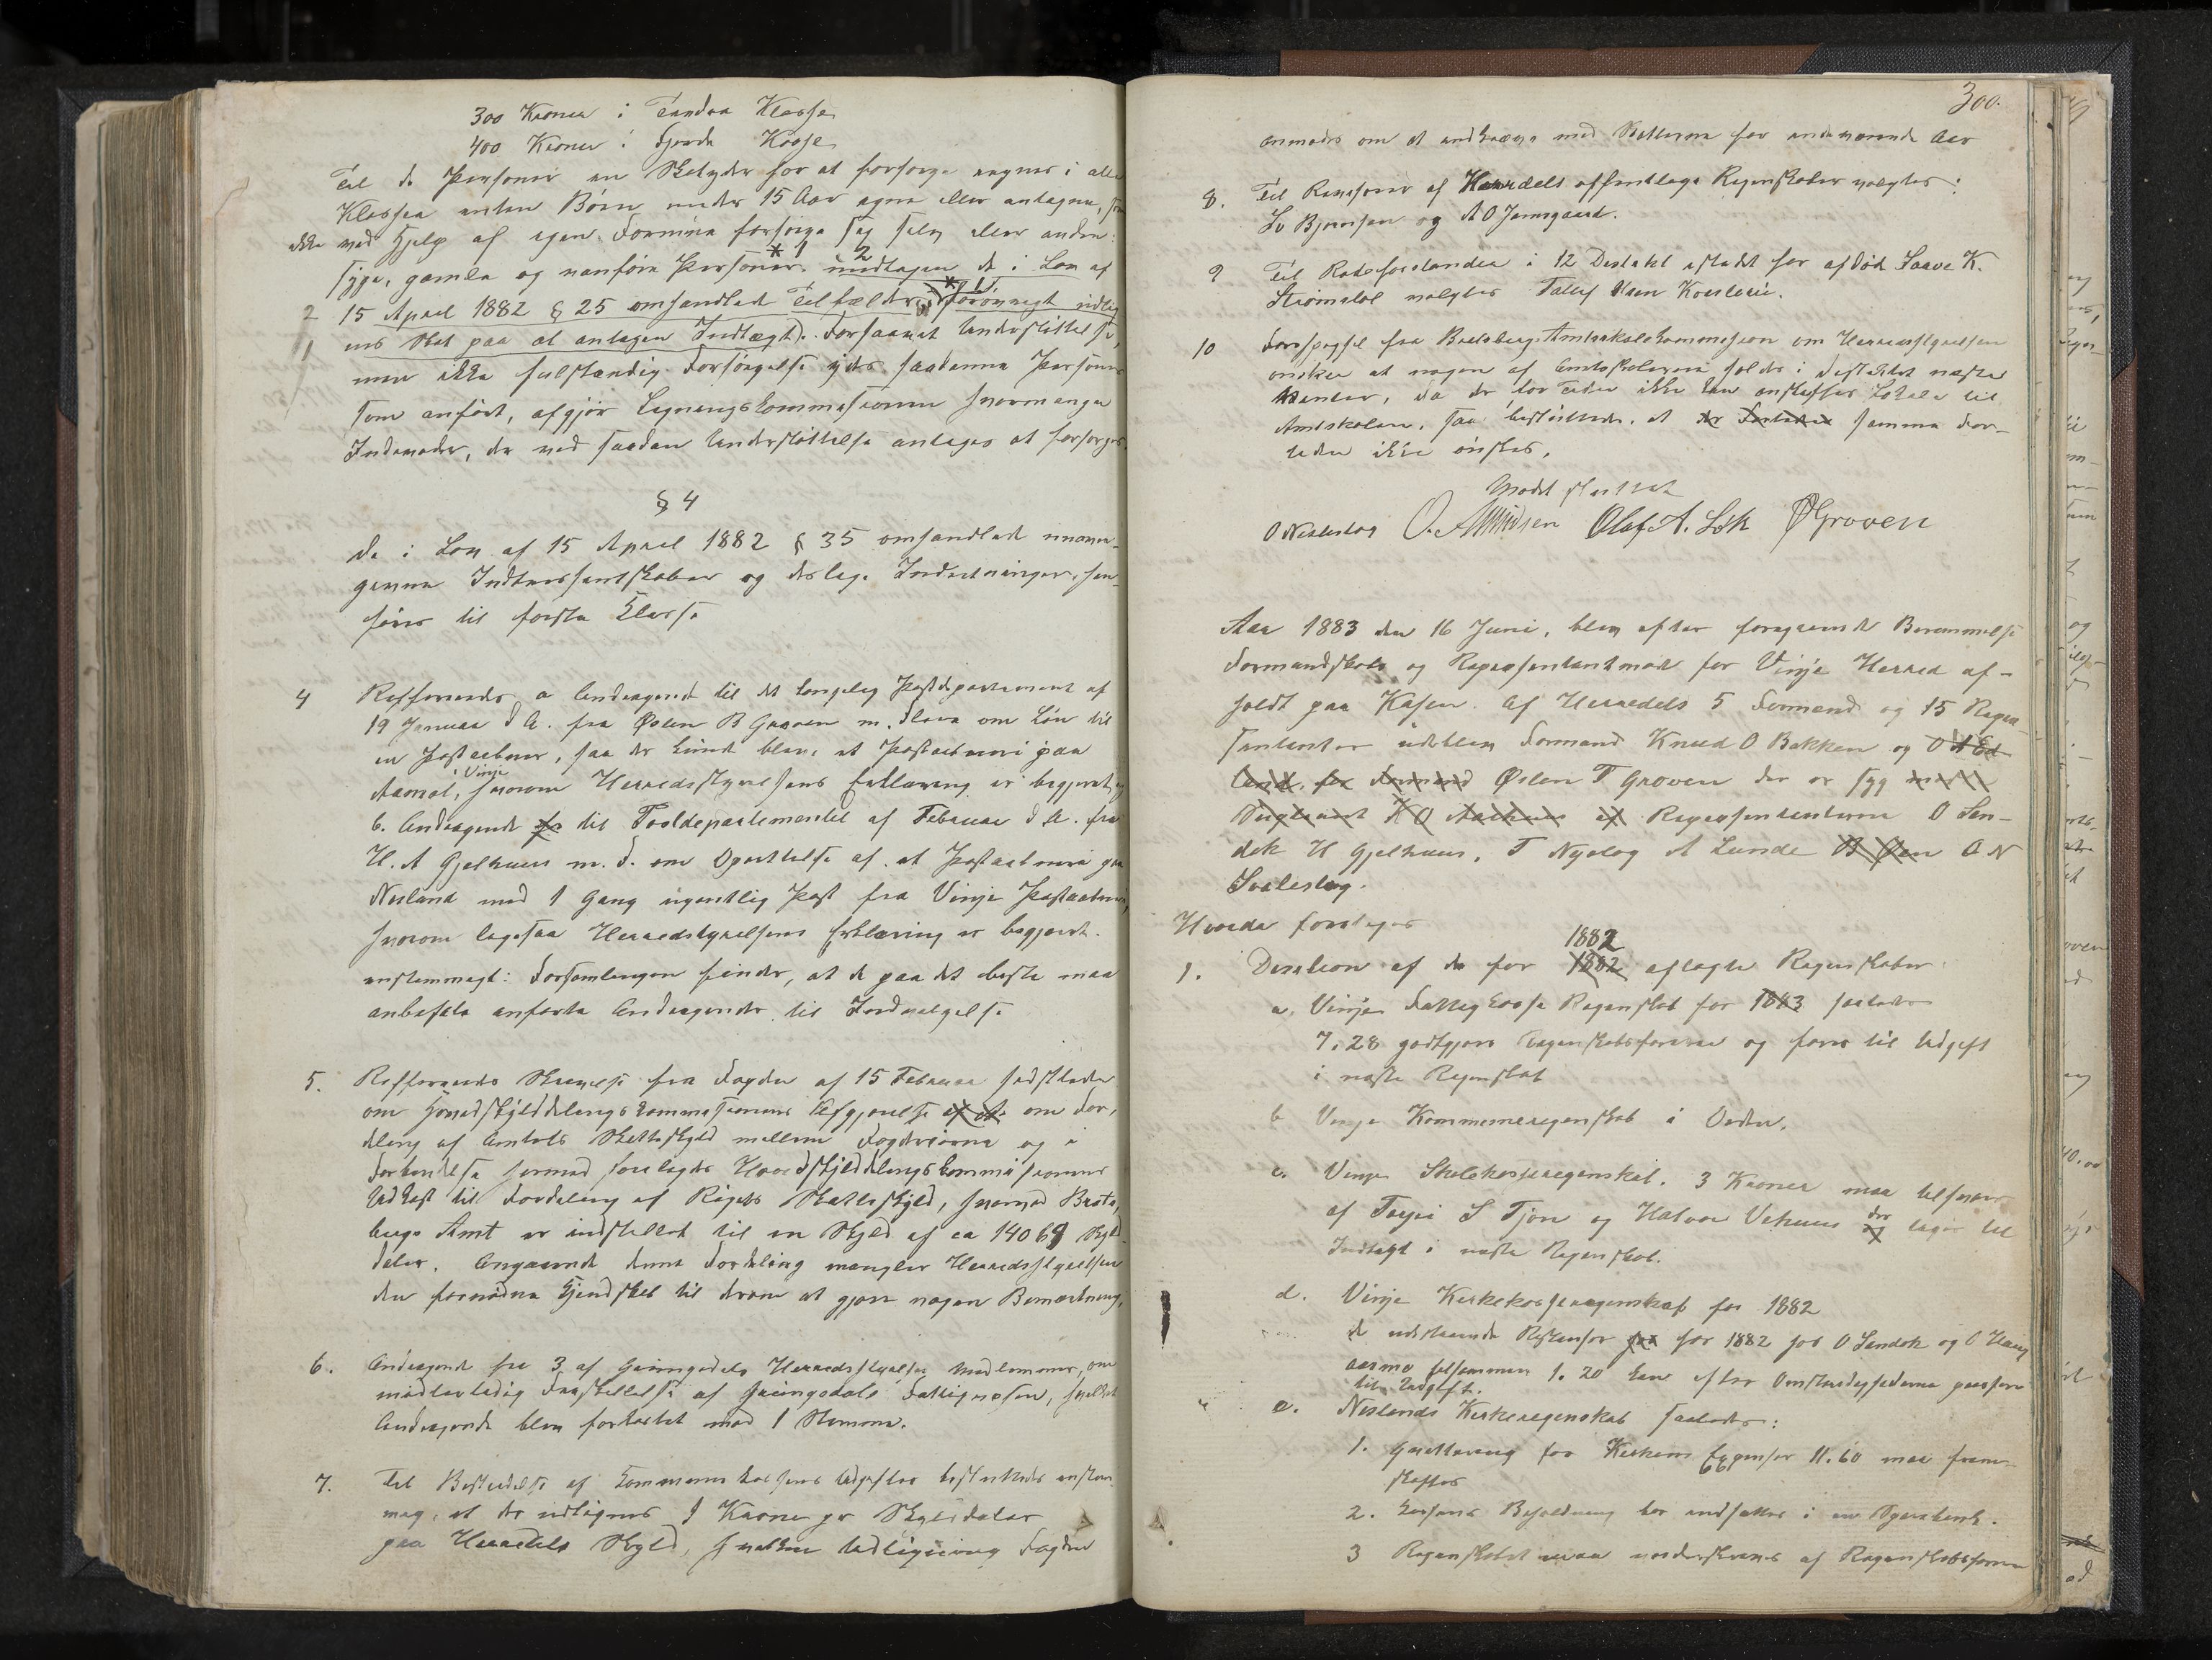 300 Kroner i Tredva Klasse
400 Kroner i Fjerde Kasse
Til de Personer en Skatyder har at forsørge regnes i alle
Klasser enten Børn under 15 Aar egne eller antagne, som
ikke ved Hjelp af egen Formue forsørge sig selv eller andre
syge, gamle og vanføre Personer * 1 2 undtagen de i Lov af
2 15 April 1882 § 25 omhandlede Tilfælde, forøvrigt udlig
1 nes Skat paa al antagen Indtægt. Forsaavat Understøttelse,
men ikke fulstændig Forsørgelse ydes saadanne Personer
som anført, afgjør Ligningskommissionen hvormange
Individer, der ved saadan Understøttelse antages at forsørges.
§ 4
De i Lov af 15 April 1882 § 35 omhandlede
Interessentskaber og deslige Indretninger, hen-
føres til første Klasse
4 Refereredes a Andragende til det kongelig Postdepartement af
19 Januar d. A. fra Østen B Groven m. flere om Løn til
en Postaabner, saa der kunde blive et Postaabneri paa
Aamot i Vinje, hvorom Herredsstyrelsens Erklæring er begjæret, og
b. Andragende til Postdepartementet af Februar d. A. fra
H. A Gjelhuus m. F. om Oprettelse af et Postaabneri paa
Nesland med 1 Gang ugentlig Post fra Vinje Postaabneri,
hvorom ligesaa Herredstyrelsens Erklæring er begjæret.
enstemmigt: Forsamlingen finder, at de paa det beste maa
anbefale anførte Andragender til Indvilgelse
5. Refereredes Skrivelse fra Fogden af 15 Februar sidstleden
om Herredskylddelingskommissionens Afgjørelse om For-
deling af Amtets Matteskyld mellem Fogderierne og i
Forbindelse hermed forelagdes Hovedskylddelingskommissionens
Udkast til Fordeling af Rigets Matteskyld, hvorved Brats-
bergs Amt er indstillet til en Skyld af ca 14069 Skyld-
daler. Angaaende denne Fordeling mangler Herredsstyrelsen
den fornødne Kjendskab til derom at gjøre nogen Bemærkning.
6. Andragende fra 3 af Grungedals Herredsstyrelses Medlemmer, om
midlertidig Fraskillelse af Grungedals Fattigvæsen, hvilket
Andragende blev forkastet mod 1 Stemme.
7. Til Bestridelse af Kommunekassens Udgifter besluttedes enstem-
mig, at der udlignes 1 Krone pr Skylddaler
paa Herredets Skyld, hvilken Udligning Fogden
300.
anmodes om at inddrage med Skatterne for indeværende Aar
8. Til Revisorer af Herredets offentlige Regnskaber valgtes:
Lv Bjørnsen og A O Jamsgaard.
9 Til Rodeforstander i 12 Distrikt istedet for afdød Saave K.
Strømstøl valgtes Tallef
10 Forespørgsel fra Bratsberg Amtsskolekommission om Herredsstyrelsen
ønsker at nogen af Amtsskolerne holdes i Distriktet næste
Vinter, da der for Tiden ikke kan anskaffes Lokale til
Amtskolen, saa besluttedes, at samme For-
tiden ikke ønskes.
Mødet sluttet
O Neslestog O. Amundsen Olaf A. Lok ØGroven
Aar 1883 den 16 Juni, blev efter foregaaende Berammelse
Formandskabs og Repræsentantmøde for Vinje Herred af-
holdt paa Kasen. Af Herredets 5 Formend og 15 Repræ-
sentanter udeblev Formand Knud O Bakken og
Østen T Groven der er syg
Repræsentanterne O Sen-
dek H Gjelhuus, T Nyelog A Lunde B Øen O N
Svalestog.
Hvorda foretages
1. Desition af de for 1882 1882 aflagte Regnskaber
a. Vinje Fattigkasse Regnskab for 1883 saaledes
7.28 godtgjøres Regnskabsføreren og føres til Udgift
i næste Regnskab
b Vinje Kommuneregenskab i Orden.
c. Vinje Skolekasseregenskab. 3 Kroner maa
af Torjei S Tjøn og Halvor Vehuus der tages til
Indtægt i næste Regenskab.
d. Vinje Kirkekasseregenskab for 1882
de udestaaende Restanser for 1882 hos O Sendek og O Haug
aasmo tilsammen 1.20 kan efter Omstændighederne passere
til Udgift.
e. Neslands Kirkeregenskab saaledes:
1. Qvittering for Kirkens Expenser 11.60 maa frem-
skaffes
2. Kassens Beholdning bør indsettes i en Sparebank.
3 Regnskabet maa underskrives af Regnskabsføreren